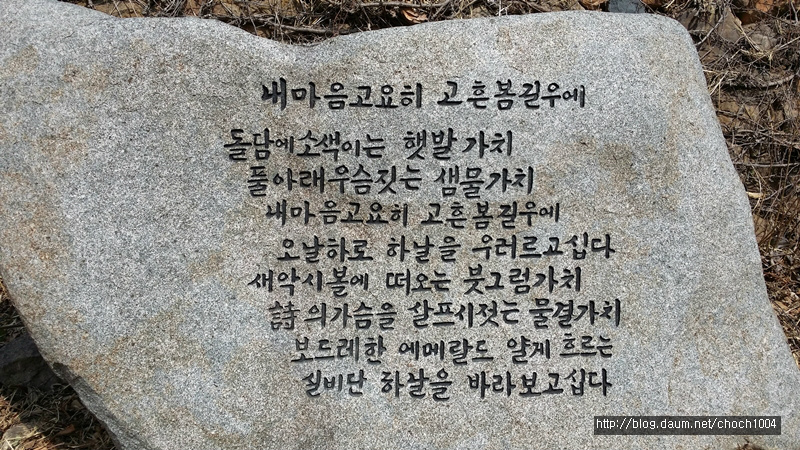 내마음고요히 고흔봄길우에
돌담에소색이는 햇발가치
풀아래우슴짓는 샘물가치
내마음고요히 고흔봄길우에
오날하로 하날을 우러르고십다
새악시볼에 떠오는 붓그럼가치
詩의가슴을 살프시젓는 물결가치
보드레한 에메랄도 얄게 흐르는
실비단 하날을 바라보고십다
http://blog.daum.net/choch1004